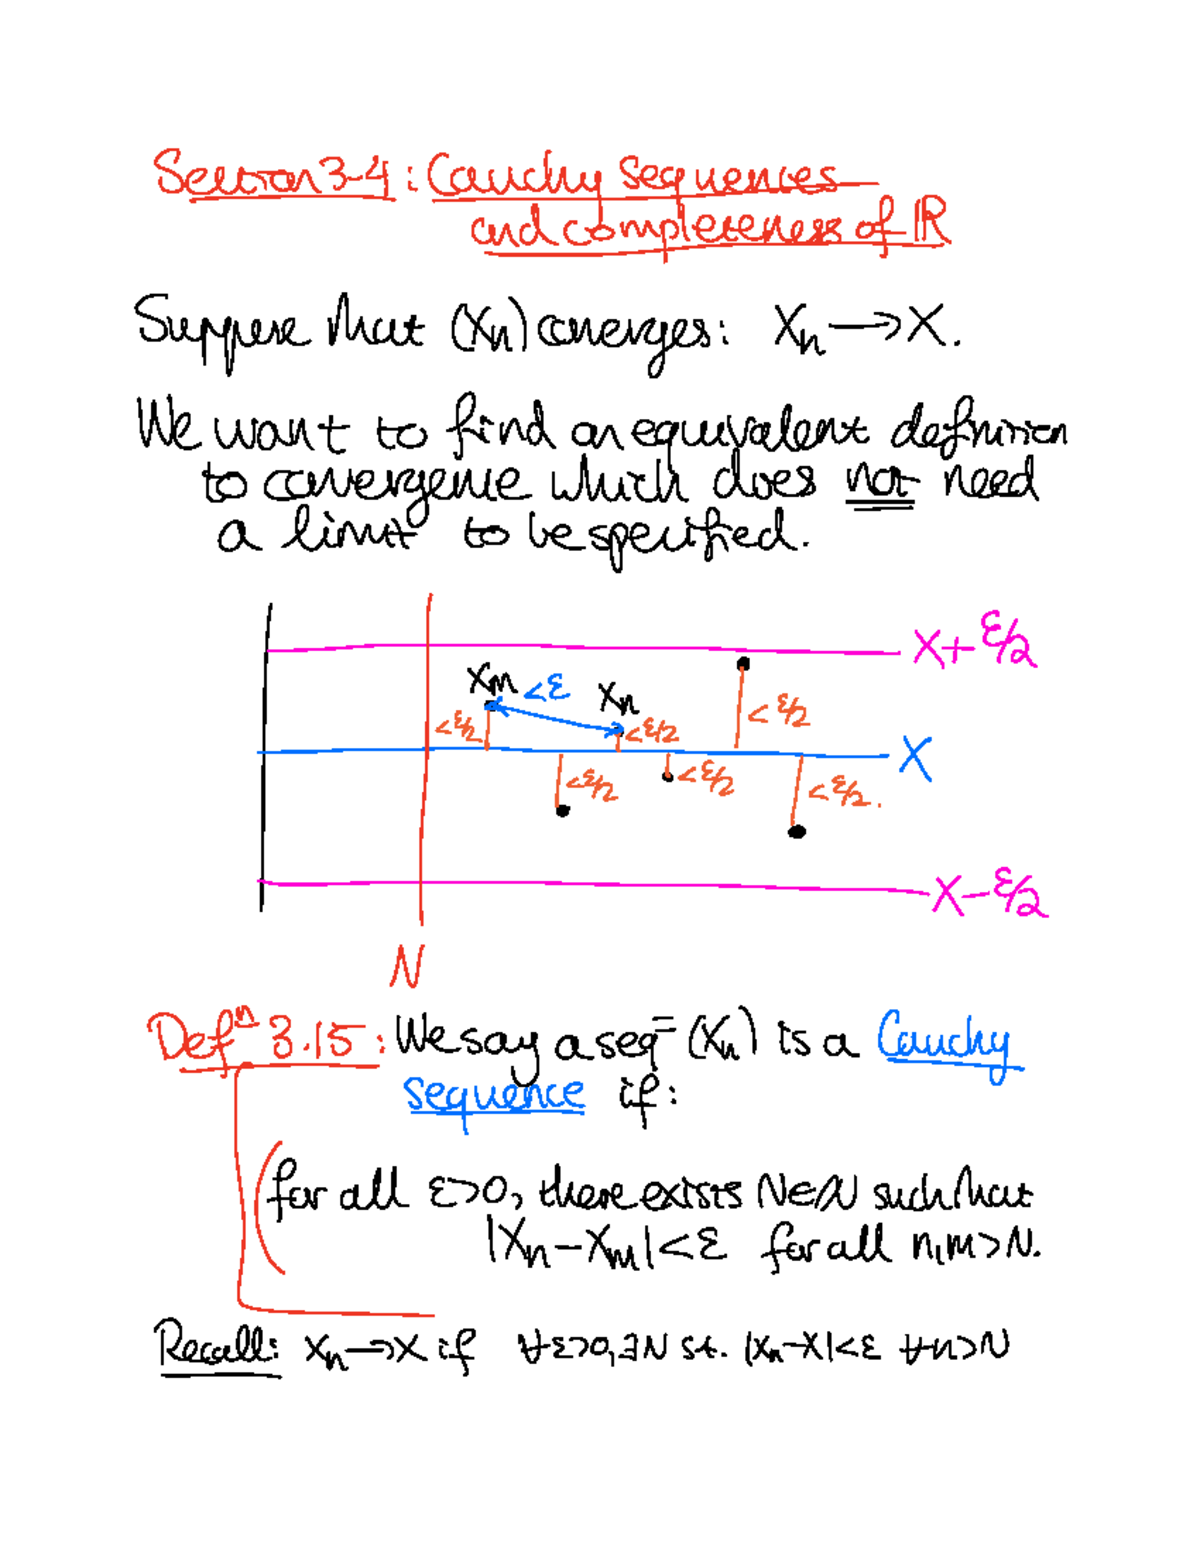 Section 3-4: Cauchy sequences
and completeness of ℝ
Suppose that (xₙ) converges: xₙ → x.
We want to find an equivalent definition
to convergence which does not need
a limit to be specified.
x + ε/2
xₘ <ε xₙ
<ε/2 <ε/2 <ε/2
x
<ε/2 <ε/2 <ε/2.
x − ε/2
N
Defⁿ 3.15: We say a seq⁼ (xₙ) is a Cauchy
sequence if:
(for all ε>0, there exists N∈ℕ such that
|xₙ − xₘ| < ε for all n,m > N.
Recall: xₙ → x if ∀ε>0, ∃N s.t. |xₙ−x|<ε ∀n>N